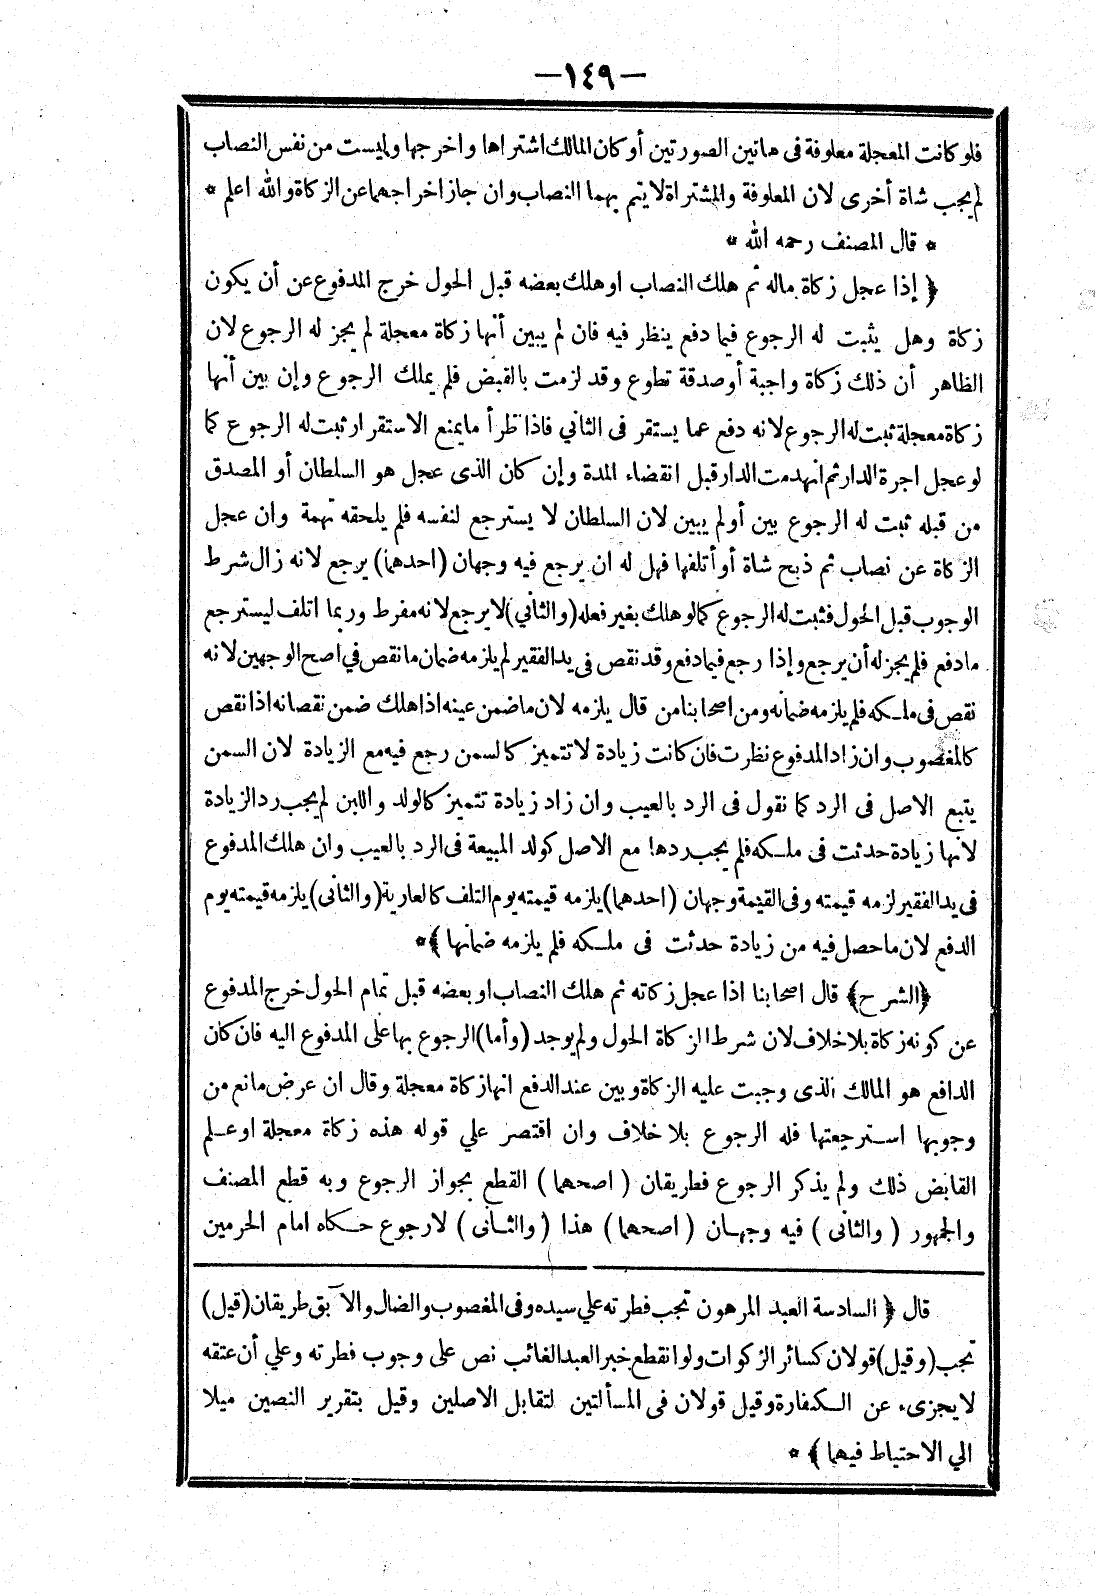 —١٤٩—
فلو كانت المعجلة معلوفة فى هاتين الصورتين أو كان المالك اشتراها واخرجها وليست من نفس النصاب
لم يجب شاة أخرى لان المعلوفة والمشتراة لا يتم بهما النصاب وان جاز اخراجهما عن الزكاة والله اعلم *
* قال المصنف رحمه الله *
﴿ إذا عجل زكاة ماله ثم هلك النصاب او هلك بعضه قبل الحول خرج المدفوع عن أن يكون
زكاة وهل يثبت له الرجوع فيما دفع ينظر فيه فان لم يبين أنها زكاة معجلة لم يجز له الرجوع لان
الظاهر أن ذلك زكاة واجبة أو صدقة تطوع وقد لزمت بالقبض فلم يملك الرجوع وإن بين أنها
زكاة معجلة ثبت له الرجوع لانه دفع عما يستقر فى الثاني فاذا طرأ ما يمنع الاستقرار ثبت له الرجوع كما
لو عجل اجرة الدار ثم انهدمت الدار قبل انقضاء المدة وإن كان الذى عجل هو السلطان أو المصدق
من قبله ثبت له الرجوع بين أو لم يبين لان السلطان لا يسترجع لنفسه فلم يلحقه تهمة وان عجل
الزكاة عن نصاب ثم ذبح شاة أو أتلفها فهل له ان يرجع فيه وجهان (احدهما) يرجع لانه زال شرط
الوجوب قبل الحول فثبت له الرجوع كما لو هلك بغير فعله (والثاني) لا يرجع لانه مفرط وربما اتلف ليسترجع
ما دفع فلم يجز له أن يرجع وإذا رجع فيما دفع وقد نقص فى يد الفقير لم يلزمه ضمان ما نقص في اصح الوجهين لانه
نقص فى ملكه فلم يلزمه ضمانه ومن اصحابنا من قال يلزمه لان ما ضمن عينه اذا هلك ضمن نقصانه اذا نقص
كالمغصوب وان زاد المدفوع نظرت فان كانت زيادة لا تتميز كالسمن رجع فيه مع الزيادة لان السمن
يتبع الاصل فى الرد كما نقول فى الرد بالعيب وان زاد زيادة تتميز كالولد واللبن لم يجب رد الزيادة
لانها زيادة حدثت فى ملكه فلم يجب ردها مع الاصل كولد المبيعة فى الرد بالعيب وان هلك المدفوع
فى يد الفقير لزمه قيمته وفى القيمة وجهان (احدهما) يلزمه قيمته يوم التلف كالعارية (والثانى) يلزمه قيمته يوم
الدفع لان ما حصل فيه من زيادة حدثت فى ملكه فلم يلزمه ضمانها ﴾*
﴿الشرح﴾ قال اصحابنا اذا عجل زكاته ثم هلك النصاب او بعضه قبل تمام الحول خرج المدفوع
عن كونه زكاة بلا خلاف لان شرط الزكاة الحول ولم يوجد (وأما) الرجوع بها على المدفوع اليه فان كان
الدافع هو المالك الذى وجبت عليه الزكاة وبين عند الدفع انها زكاة معجلة وقال ان عرض مانع من
وجوبها استرجعتها فله الرجوع بلا خلاف وان اقتصر علي قوله هذه زكاة معجلة او علم
القابض ذلك ولم يذكر الرجوع فطريقان (اصحهما) القطع بجواز الرجوع وبه قطع المصنف
والجمهور (والثانى) فيه وجهان (اصحهما) هذا (والثانى) لا رجوع حكاه امام الحرمين
قال ﴿ السادسة العبد المرهون تجب فطرته علي سيده وفى المغصوب والضال والآبق طريقان (قيل)
تجب (وقيل) قولان كسائر الزكوات ولو انقطع خبر العبد الغائب نص على وجوب فطرته وعلي أن عتقه
لا يجزىء عن الكفارة وقيل قولان فى المسألتين لتقابل الاصلين وقيل بتقرير النصين ميلا
الي الاحتياط فيهما ﴾ *